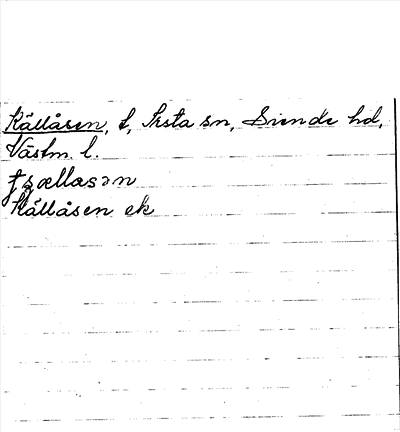 Källåsen, t, Irsta sn, Siende hd,
Västm. l.
Källåsen ek